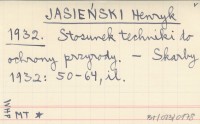 JASIEŃSKI Henryk
1932. Stosunek techniki do
ochrony przyrody. – Skarby
1932: 50-64, il.
WHP
MT *